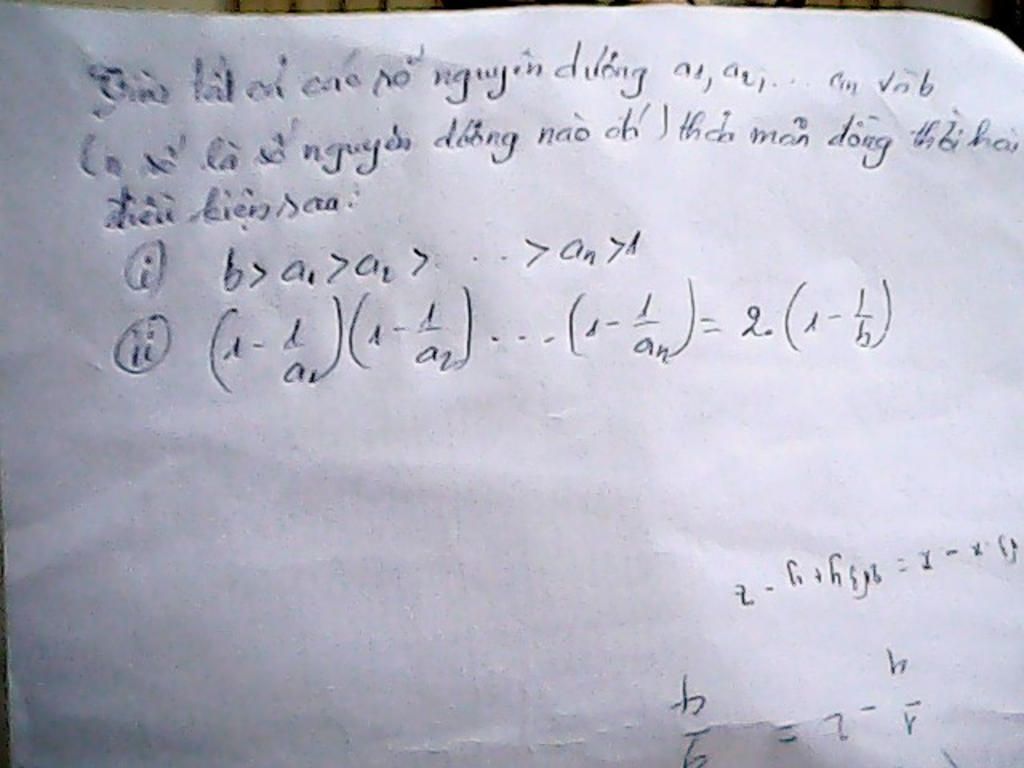 Tìm tất cả các số nguyên dương a₁, a₂, ... aₙ và b
(n số là số nguyên dương nào đó) thỏa mãn đồng thời hai
điều kiện sau:
(i) b > a₁ > a₂ > ... > aₙ > 1
(ii) (1 - 1/a₁)(1 - 1/a₂) ... (1 - 1/aₙ) = 2.(1 - 1/b)